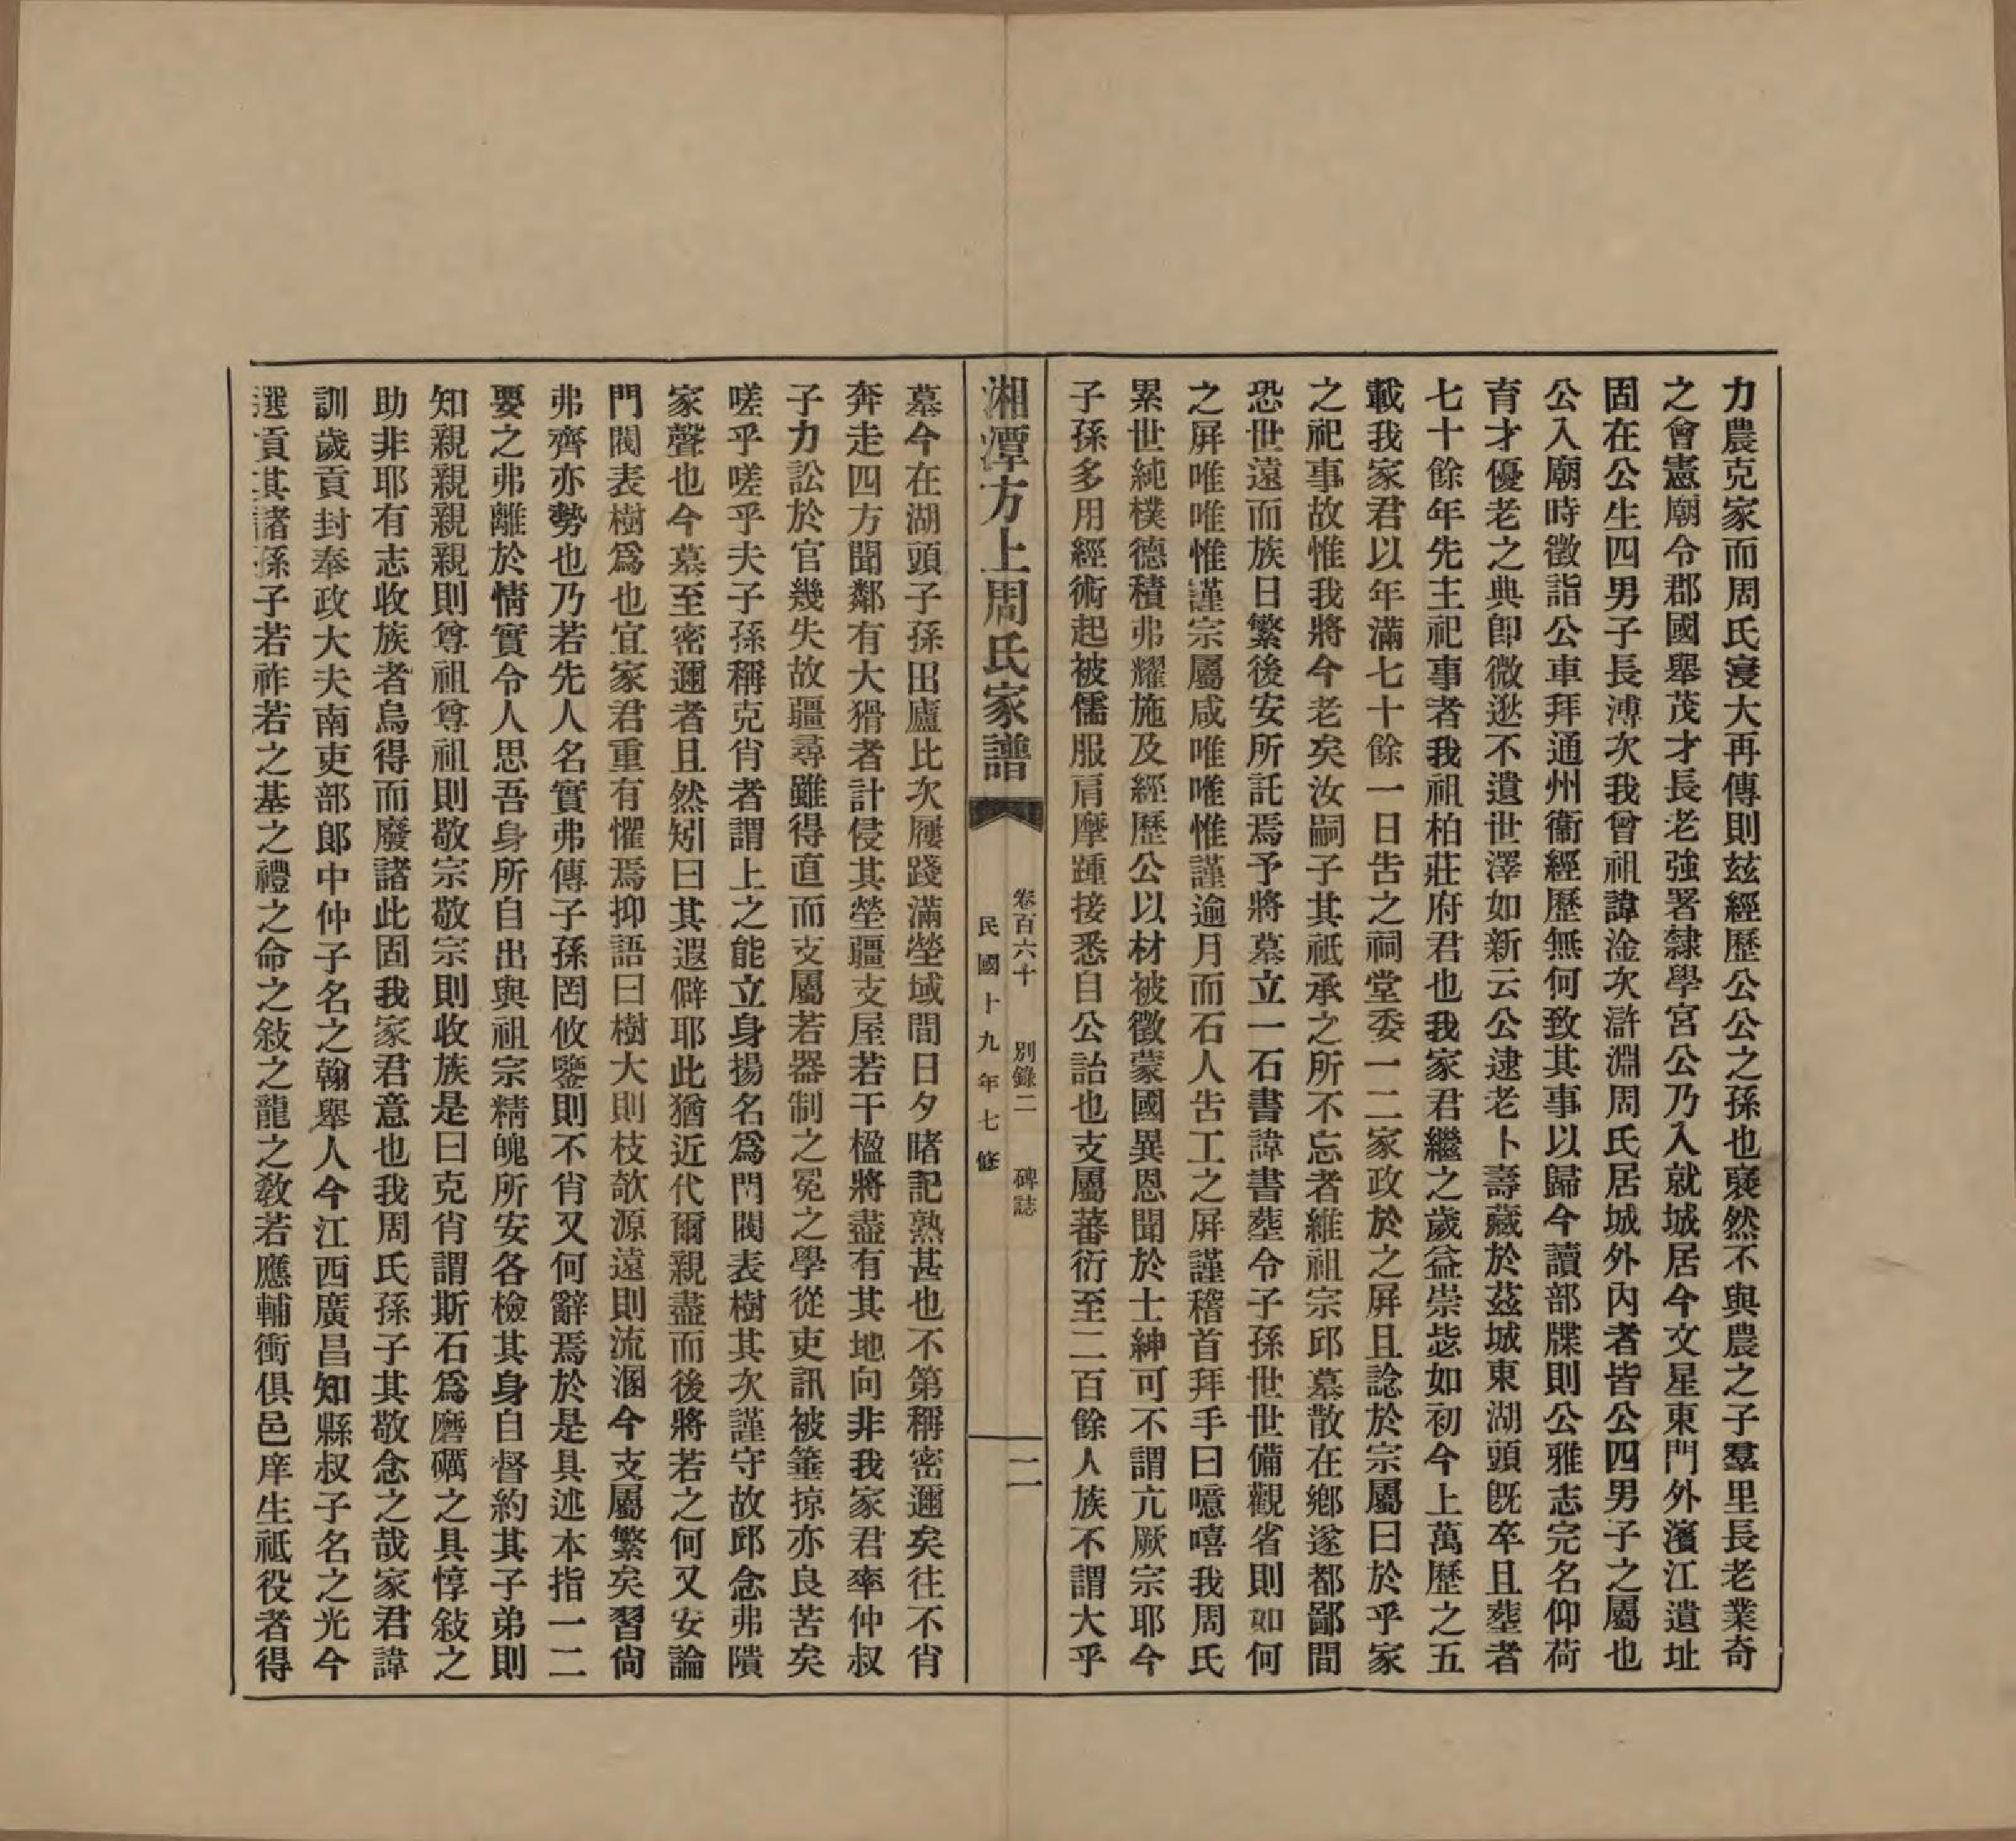 力農克家而周氏寖大再傳則玆經歷公公之孫也裦然不與農之子羣里長老業奇
之會憲廟令郡國舉茂才長老強署隸學宮公乃入就城居今文星東門外濱江遺址
固在公生四男子長溥次我曾祖諱淦次滸淵周氏居城外內者皆公四男子之屬也
公入廟時徵詣公車拜通州衞經歷無何致其事以歸今讀部牒則公雅志完名仰荷
育才優老之典卽微逖不遺世澤如新云公逮老卜壽藏於茲城東湖頭旣卒且葬者
七十餘年先主祀事者我祖柏莊府君也我家君繼之歲益崇毖如初今上萬歷之五
載我家君以年滿七十餘一日告之祠堂委一二家政於之屏且諗於宗屬曰於乎家
之祀事故惟我將今老矣汝嗣子其祗承之所不忘者維祖宗邱墓散在鄕遂都鄙間
恐世遠而族日繁後安所託焉予將墓立一石書諱書葬令子孫世世備觀省則如何
之屏唯唯惟謹宗屬咸唯唯惟謹逾月而石人吿工之屏謹稽首拜手曰噫嘻我周氏
累世純樸德積弗耀施及經歷公以材被徵蒙國異恩聞於士紳可不謂亢厥宗耶今
子孫多用經術起被儒服肩摩踵接悉自公詒也支屬蕃衍至二百餘人族不謂大乎
湘潭方上周氏家譜 卷百六十 別錄二 碑誌 民國十九年七修 二
墓今在湖頭子孫田廬比次屨踐滿塋域間日夕睹記熟甚也不第稱密邇矣往不肖
奔走四方聞鄰有大猾者計侵其塋疆支屋若干楹將盡有其地向非我家君率仲叔
子力訟於官幾失故疆尋雖得直而支屬若器制之冤之學從吏訊被箠掠亦良苦矣
嗟乎嗟乎夫子孫稱克肖者謂上之能立身揚名爲門閥表樹其次謹守故邱念弗隤
家聲也今墓至密邇者且然矧曰其遐僻耶此猶近代爾親盡而後將若之何又安論
門閥表樹爲也宜家君重有懼焉抑語曰樹大則枝欹源遠則流溷今支屬繁矣習尙
弗齊亦勢也乃若先人名實弗傳子孫罔攸鑒則不肖又何辭焉於是具述本指一二
要之弗離於情實令人思吾身所自出與祖宗精魄所安各檢其身自督約其子弟則
知親親親親則尊祖尊祖則敬宗敬宗則收族是曰克肖謂斯石爲磨礪之具惇敍之
助非耶有志收族者烏得而廢諸此固我家君意也我周氏孫子其敬念之哉家君諱
訓歲貢封奉政大夫南吏部郞中仲子名之翰舉人今江西廣昌知縣叔子名之光今
選貢其諸孫子若祚若之基之禮之命之敍之龍之敎若應輔衝俱邑庠生祗役者得